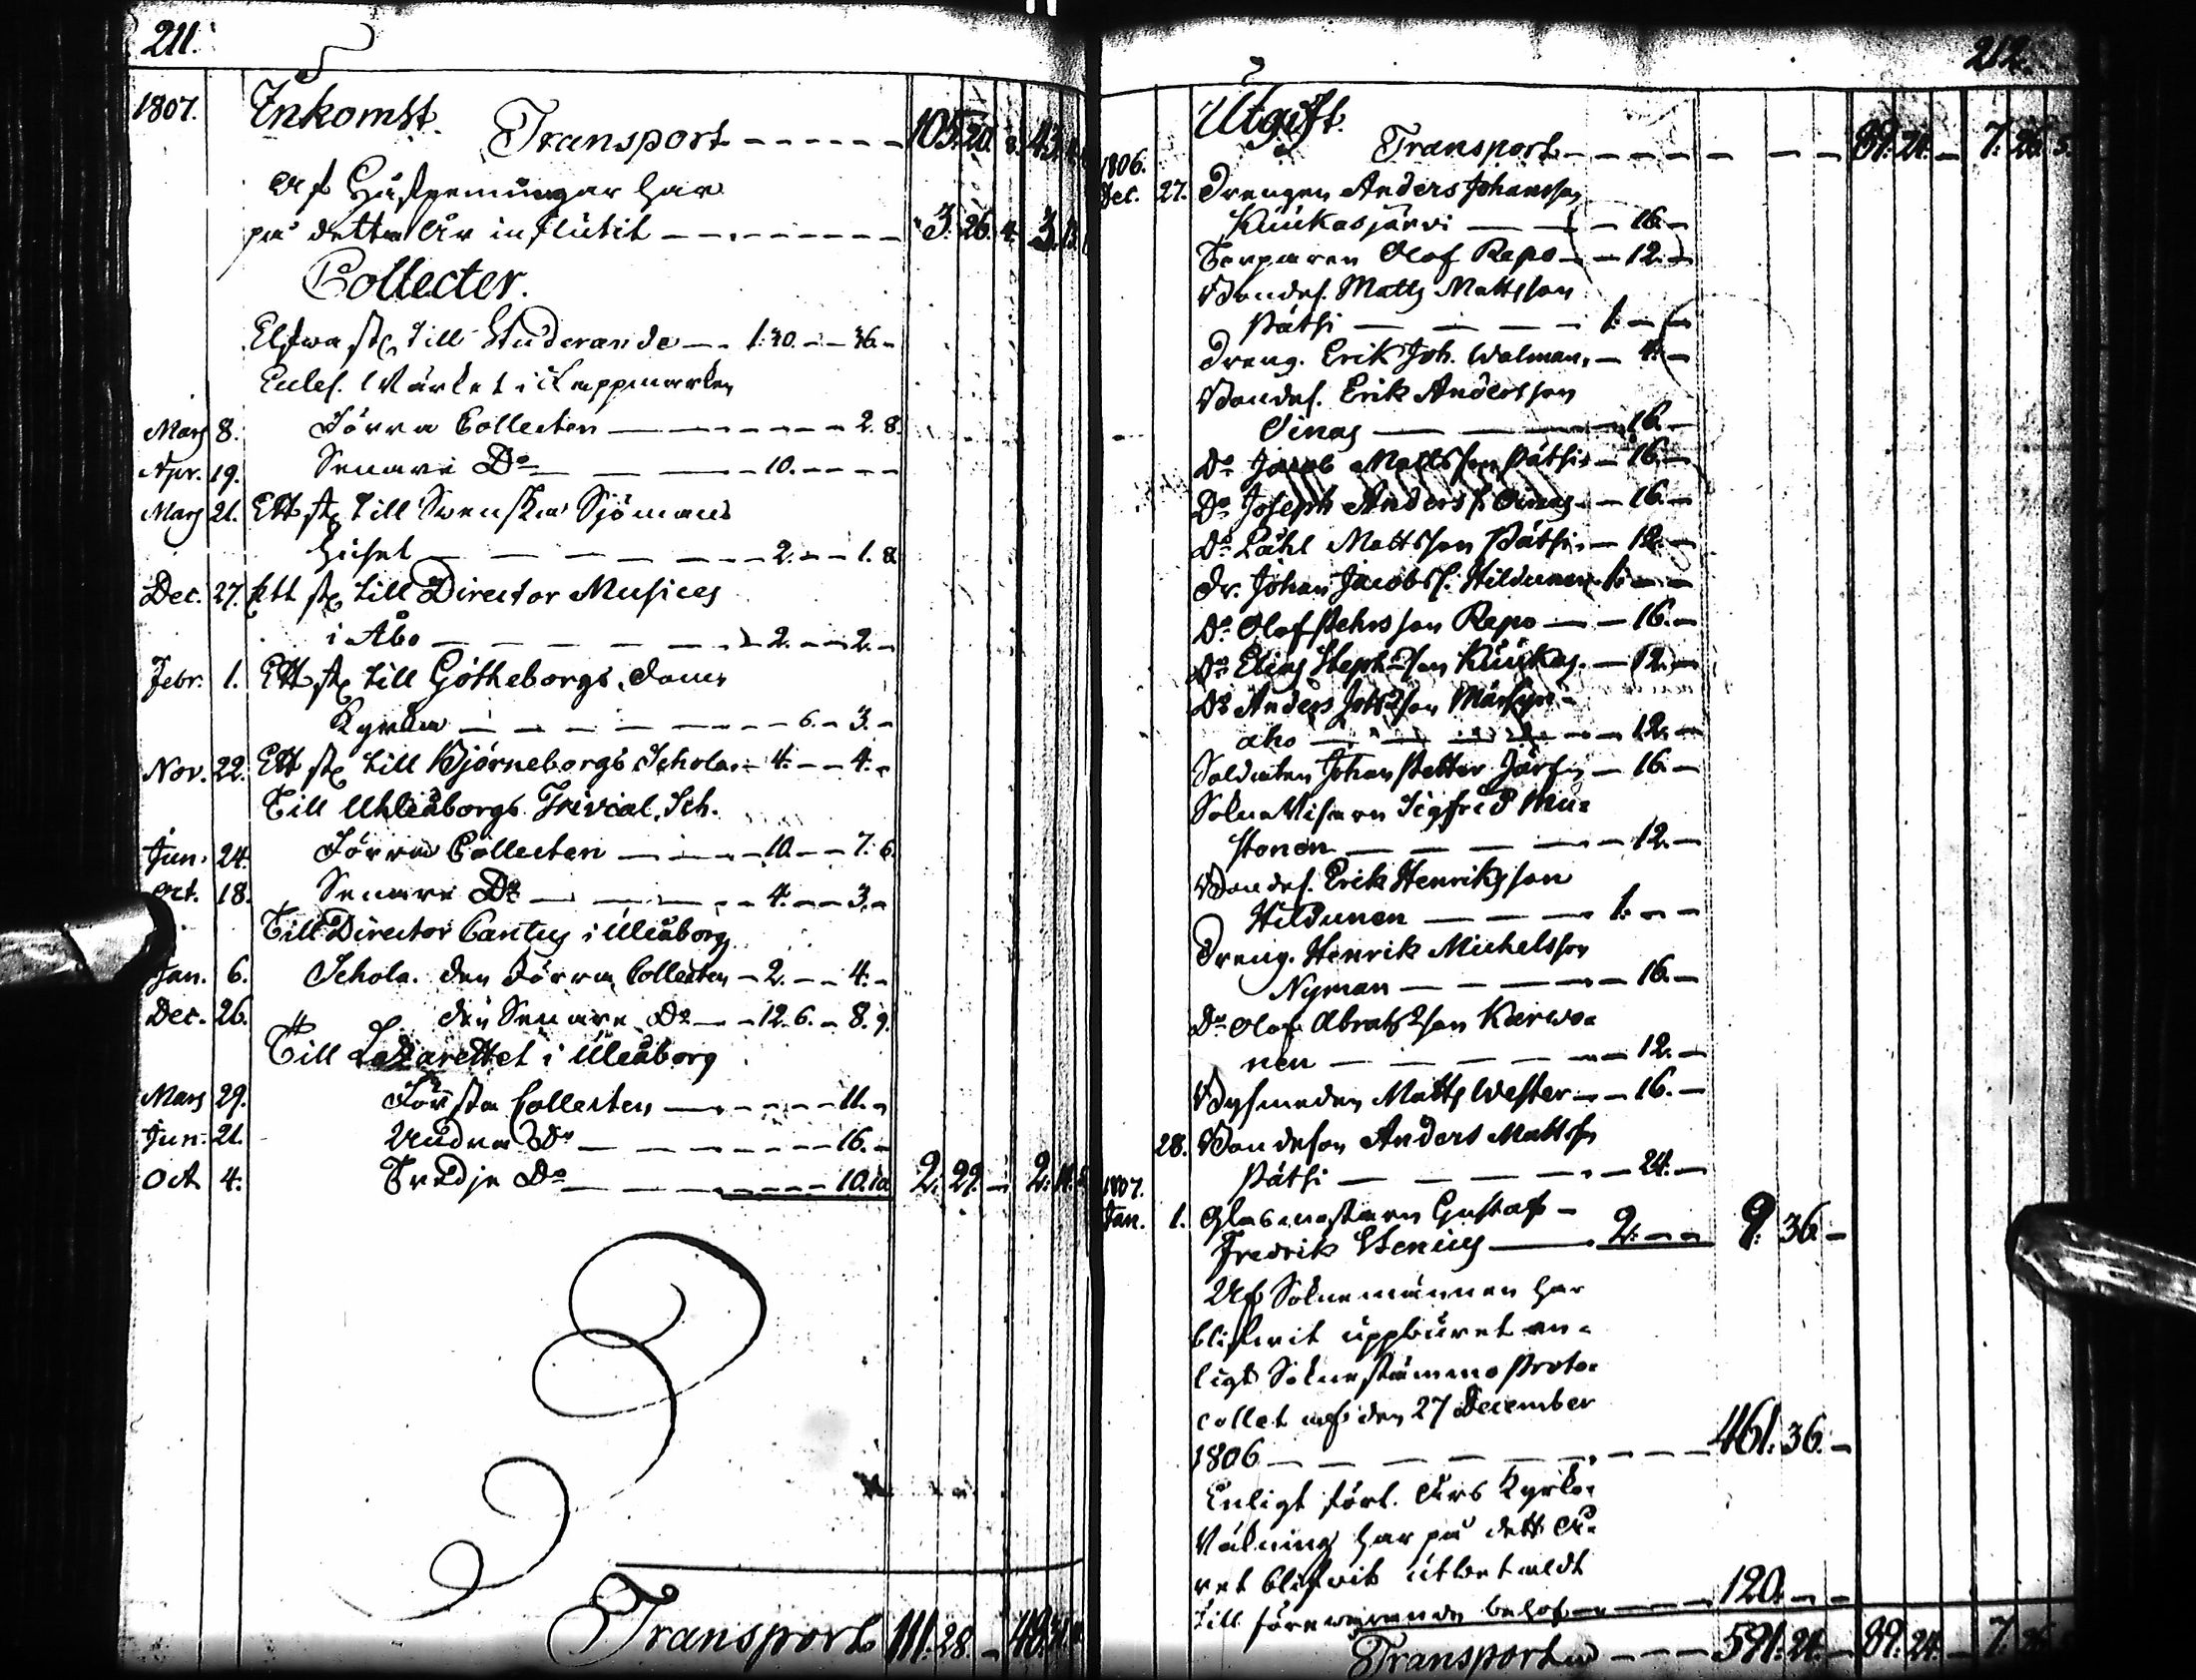 211.
1807. Inkomst.
Transport - - - - - 105. 20. 8. 43.
Af Håfpenningar har
på detta År influtit - - - - - - 3. 26. 4. 3. 13.
Collecter.
Elfwa st. till Studerande - - 1. 30. - - 36. -
Eccles. Wärket i Lappmarken
Mars 8. Förra Collecten - - - - - 2. 8.
Apr. 19. Senare Do - - - 10. - - - -
Mars 21. Ett st. till Svenska Sjömans
Huset - - - - - 2. - - 1. 8.
Dec. 27. Ett st. till Director Musices
i Åbo - - - - - 2. - - 2. -
Febr. 1. Ett st. till Götheborgs Dom
Kyrka - - - - - 6. - 3. -
Nov. 22. Ett st. till Björneborgs Schola - 4. - - 4. -
Till Uhleåborgs Trivial Sch.
Jun. 24. Förra Collecten - - - 10. - - 7. 6.
Oct. 18. Senare Do - - - 4. - - 3. -
Till Director Cantus i Uleåborgs
Jan. 6. Schola. den Förra Collecten - 2. - - 4. -
Dec. 26. den Senare Do - - 12. 6. - 8. 9.
Till Lazarettet i Uleåborg
Mars 29. Första Collecten - - - - 11. -
Jun. 21. Andra Do - - - - - 16. -
Oct 4. Tredje Do - - - - - 10. 10. 2. 29. - 2.
Transport 111. 28. -
212.
Utgift.
Transport - - - - - - 89. 24. - 7. 26. 5.
1806.
Dec. 27. Drengen Anders Johansson
Kuukasjärvi - - - 16. -
Torparen Olof Repo - - 12. -
Bondes. Matts Mattsson
Pätsi - - - - 1. - -
Dreng. Erik Joh. Walman - 4. -
Bondes. Erik Andersson
Oinas - - - 16. -
Do Jacob Mattsson Pätsi - 16. -
Do Joseph Anderss. Oinas - - 16. -
Do Påhl Mattsson Pätsi - 12. -
Dr. Johan Jacobss. Hildunen 1. - -
Do Olof Pehrsson Repo - - 16. -
Do Elias Stephsson Kuukas. - 12. -
Do Anders
aho - - - - - 12. -
Soldaten Johan Petter - 16. -
Sigfred Mu=
stonen - - - - 12. -
Bondes. Erik Henriksson
Hildunen - - - - 1. - -
Dreng. Henrik Michelsson
Nyman - - - - - 16. -
Do Olof Abrahsson Karwo=
nen - - - - - 12. -
Bysmeden Matts Wester - - 16. -
28. Bondeson Anders Mattsson
Pätsi - - - - - 24. -
1807.
Jan. 1. Glasmästaren Gustaf -
Fredrik - - 2. - - 9. 36. -
Af Soknemännen har
blifwit uppburet en=
ligt Soknestämmo Proto=
collet af den 27 December
1806 - - - - - - - 461. 36. -
Enligt förl. Års Kyrko=
Räkning har på detta Å=
ret blifwit utbetaldt
till förewarande behof - - - 120. - -
Transport - - - 591. 24. - 89. 24. - 7. 26.